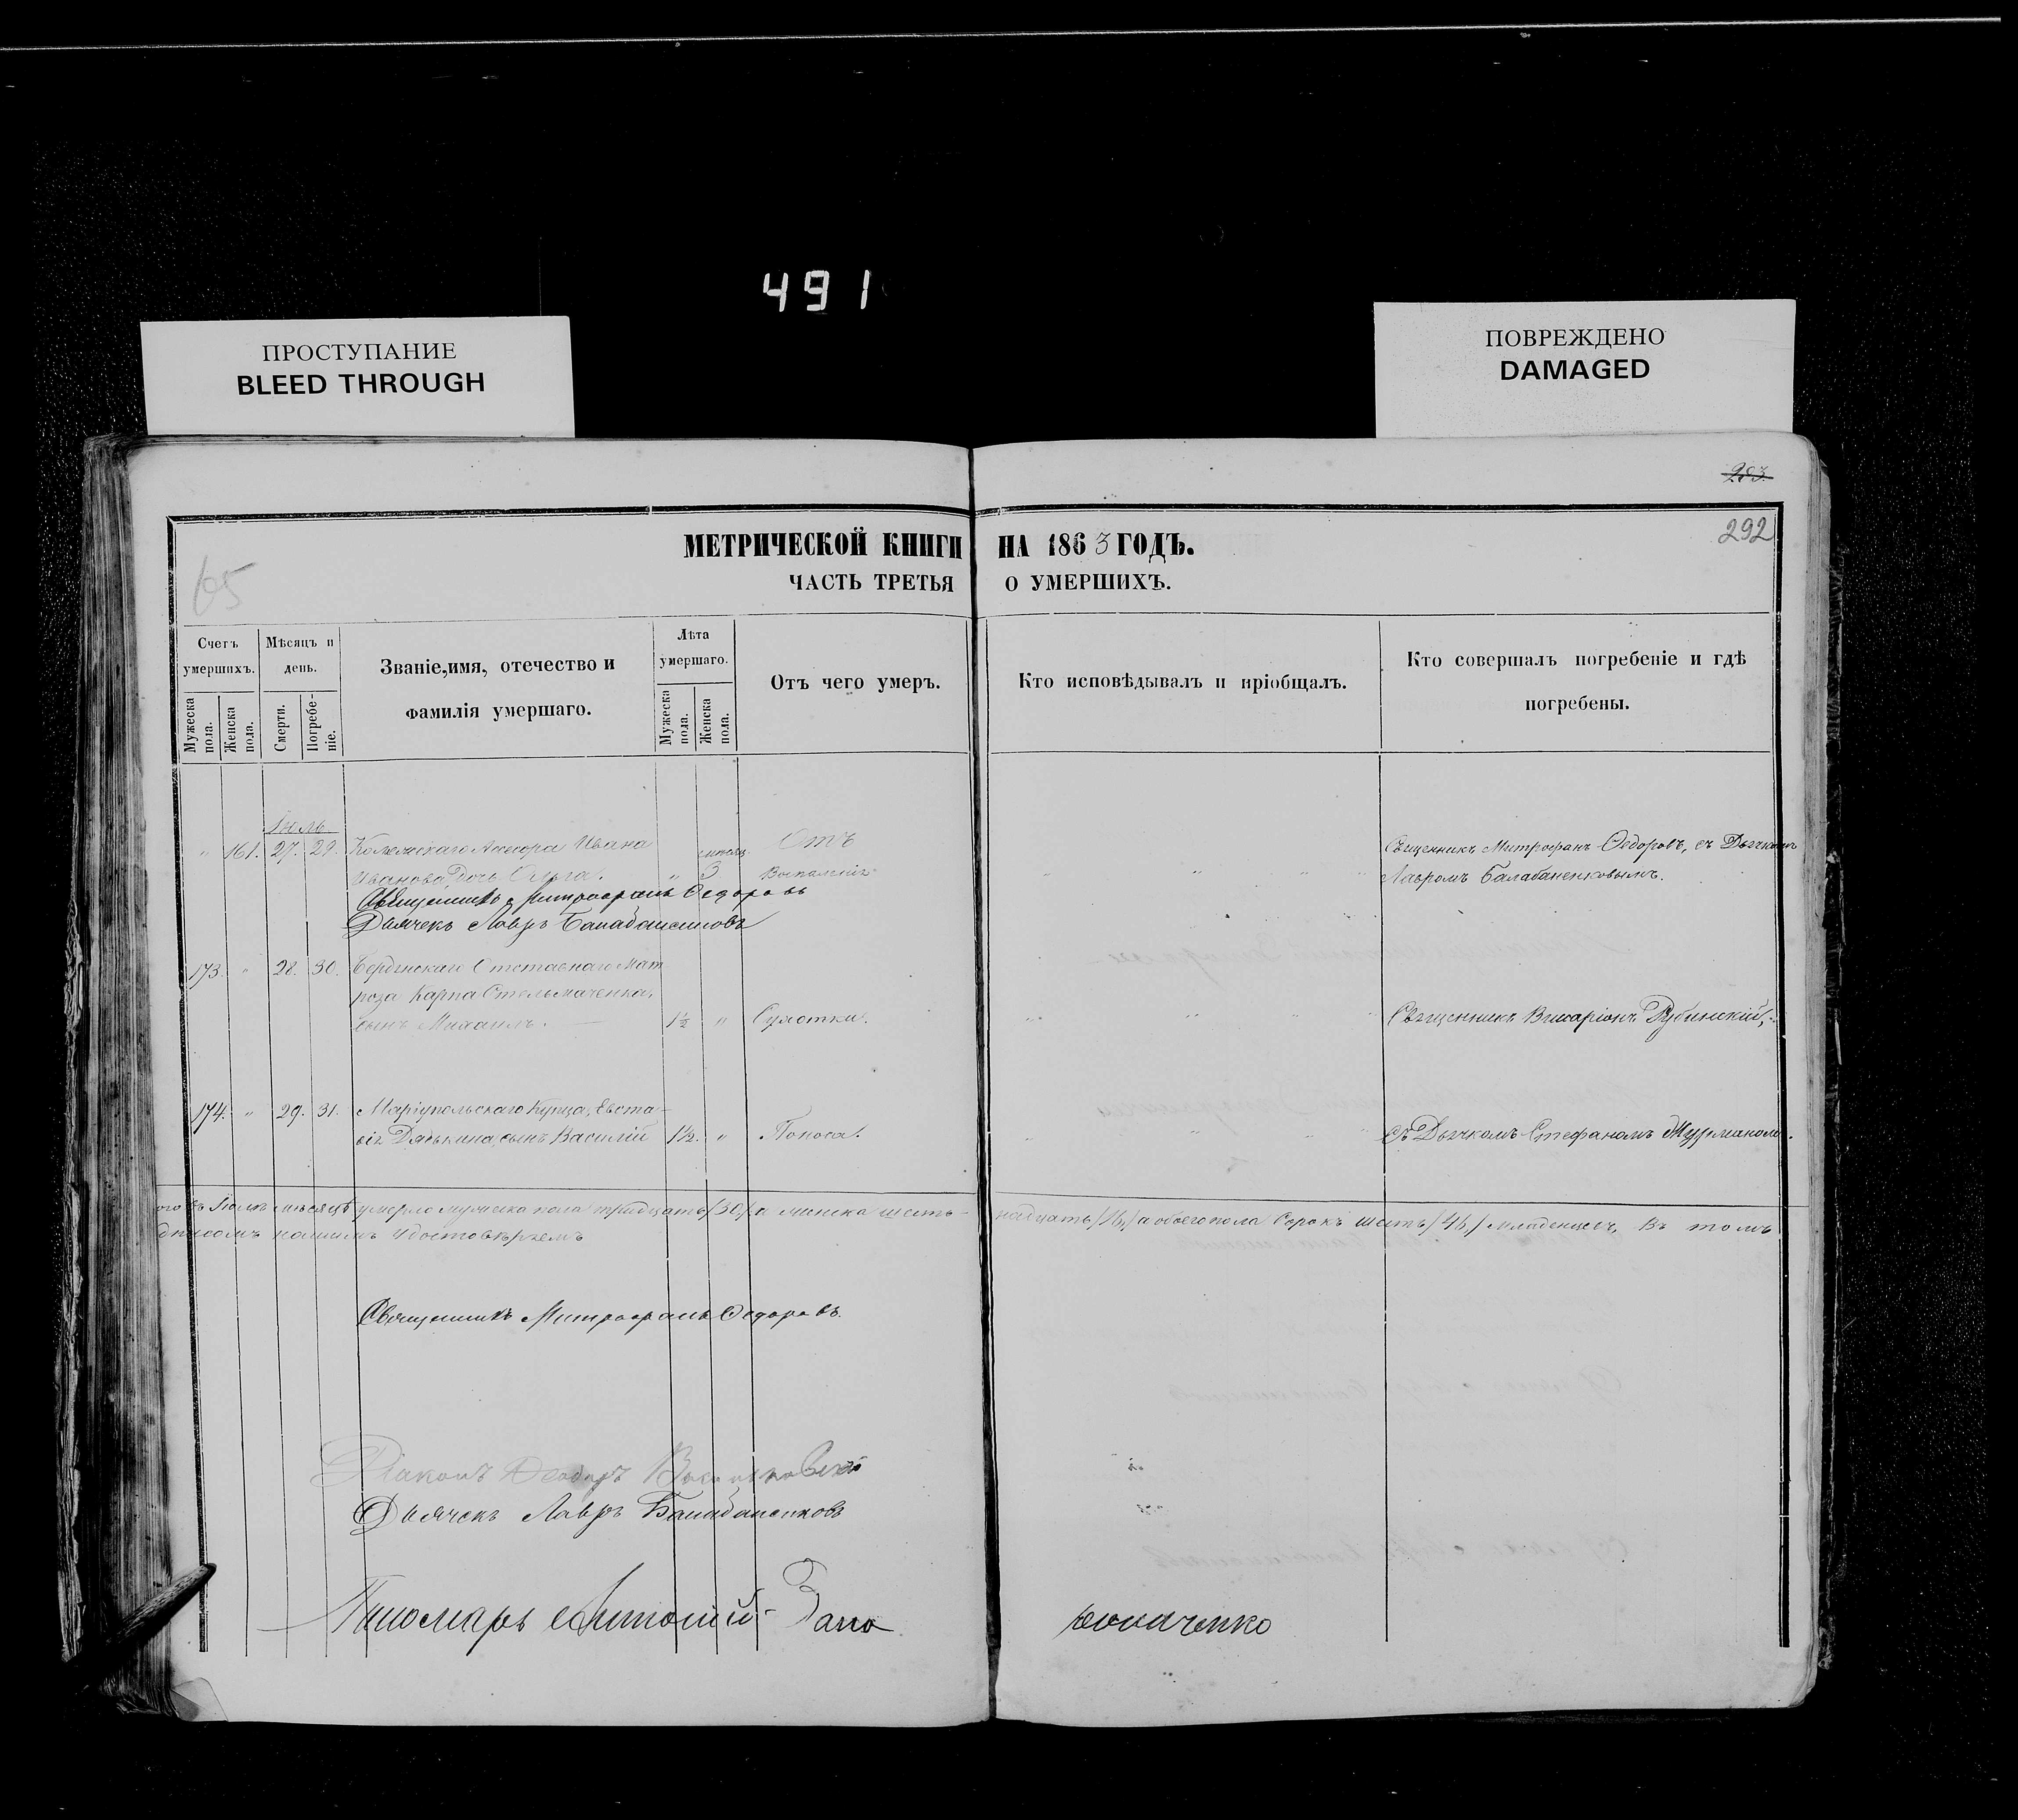 491
ПРОСТУПАНИЕ
BLEED THROUGH
ПОВРЕЖДЕНО
DAMAGED
293
292
65
МЕТРИЧЕСКОЙ КНИГИ НА 1863 ГОДЪ.
ЧАСТЬ ТРЕТЬЯ О УМЕРШИХЪ.
Счетъ умершихъ.
Мужеска пола.
Женска пола.
Мѣсяцъ и день.
Смерти.
Погребеніе.
Званіе, имя, отечество и
фамилія умершаго.
Лѣта умершаго.
Мужеска пола.
Женска пола.
Отъ чего умеръ.
Кто исповѣдывалъ и пріобщалъ.
Кто совершалъ погребеніе и гдѣ
погребены.
Іюль
" 161. 27. 29. Ивана мѣсяц. Отъ Священникъ Митрофанъ Ѳедоровъ, съ Дьячкомъ
Иванова, дочь Ольга. " 3 Воспаленія " " " " Лавромъ Балабаненковымъ.
Священникъ Митрофанъ Ѳедоровъ
Дьячекъ Лавръ Балабаненковъ
173. " 28. 30. Бердянскаго Отставнаго Мат
роза Карпа Стельмаченка,
сынъ Михаилъ. 1½ " Сухотки. " " " " Священникъ Виссаріонъ Рубинскій,
174. " 29. 31. Маріупольскаго Купца, Евста-
фія Дядькина, сынъ Василій 1½. " Поноса. " " " съ Дьячкомъ Стефаномъ
ого въ Іюлѣ мѣсяцѣ умерло мужеска пола тридцать /30,/ а женска шесть- надцать /16,/ а обоего пола сорокъ шесть /46,/ младенцевъ, въ томъ
дписомъ нашимъ удостовѣряемъ
Священникъ Митрофанъ Ѳедоровъ.
Діаконъ
Дьячекъ Лавръ Балабаненковъ
Пономарь Антоній